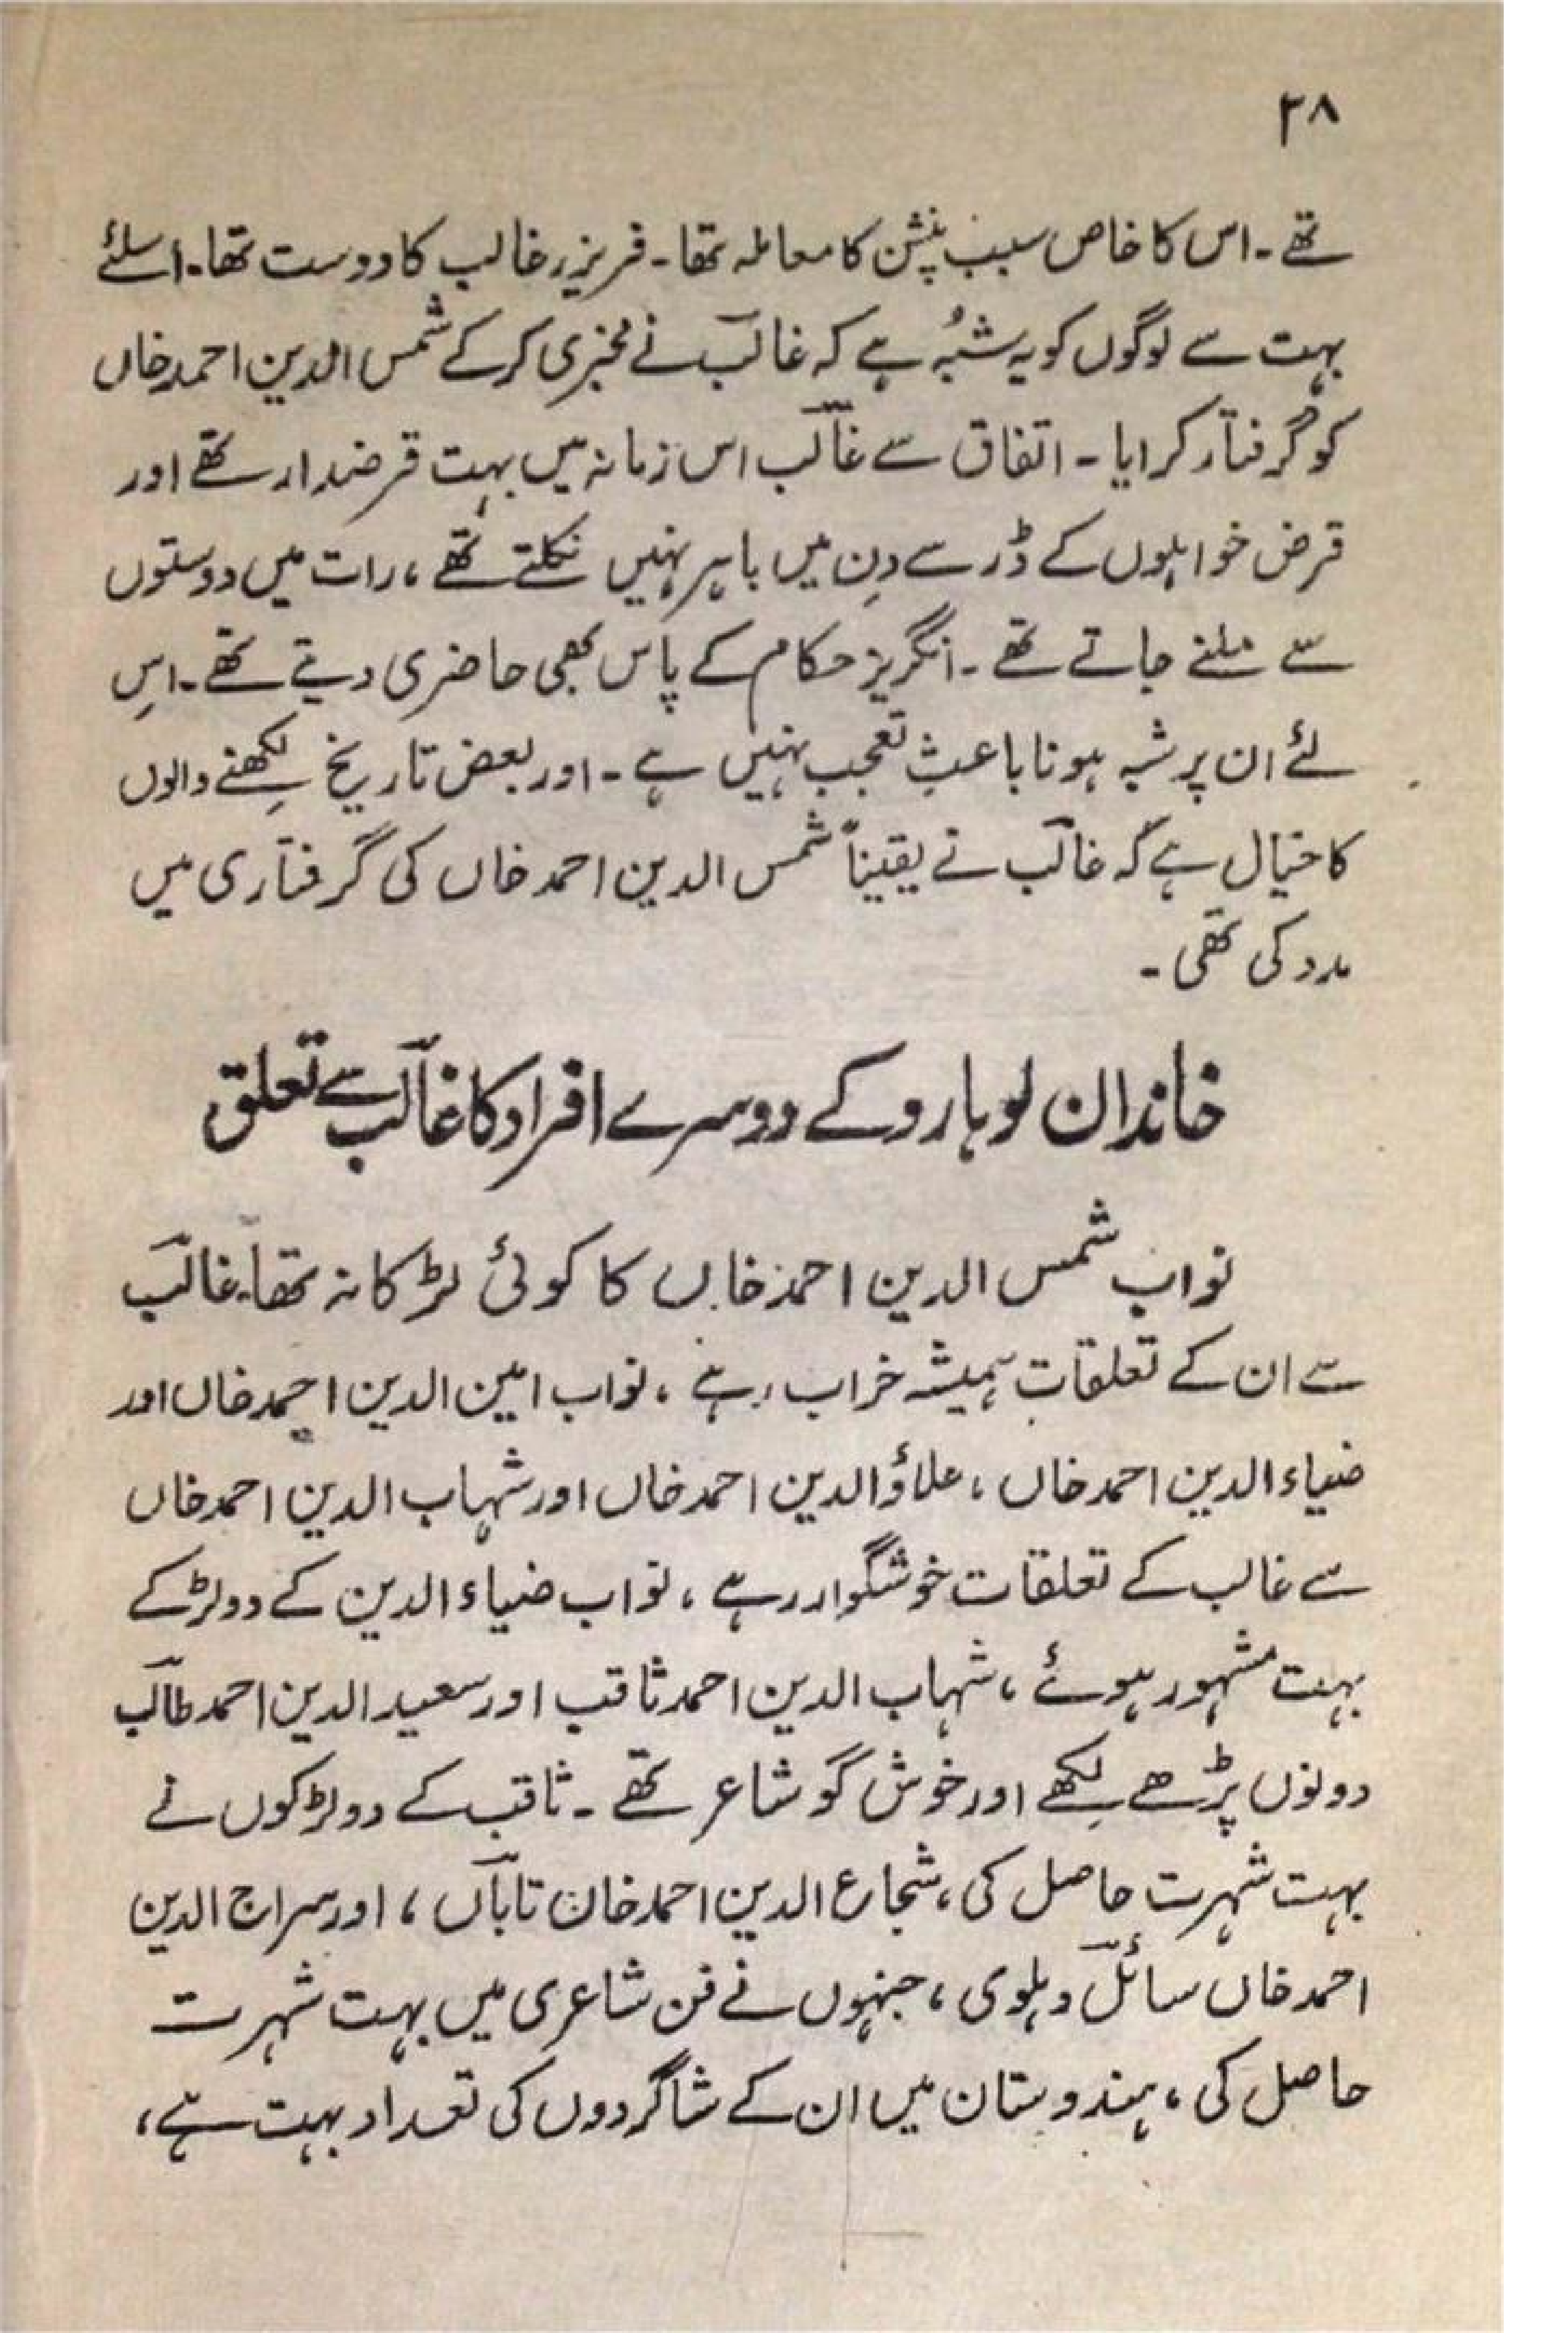 ۲۸
تھے۔ اس کا خاص سبب پنشن کا معاملہ تھا۔ فریزر غالب کا دوست تھا۔ اسلئے
بہت سے لوگوں کو یہ شبُہ ہے کہ غالبؔ نے مخبری کر کے شمس الدین احمد خاں
کو گرفتار کرایا۔ اتفاق سے غالبؔ اس زمانہ میں بہت قرضدار تھے اور
قرض خواہوں کے ڈر سے دِن میں باہر نہیں نکلتے تھے، رات میں دوستوں
سے ملنے جاتے تھے۔ انگریز حکام کے پاس بھی حاضری دیتے تھے۔ اسِ
لئے ان پر شبہ ہونا باعثِ تعجب نہیں ہے۔ اور بعض تاریخ لکھنے والوں
کا خیال ہے کہ غالبؔ نے یقیناً شمس الدین احمد خاں کی گرفتاری میں
مدد کی تھی۔
خاندان لوہارو کے دوسرے افراد کا غالبؔ سے تعلق
نواب شمس الدین احمد خاں کا کوئی لڑکا نہ تھا۔ غالبؔ
سے ان کے تعلقات ہمیشہ خراب رہے، نواب امین الدین احمد خاں اور
ضیاء الدین احمد خاں، علاؤالدین احمد خاں اور شہاب الدین احمد خاں
سے غالب کے تعلقات خوشگوار رہے، نواب ضیاء الدین کے دو لڑکے
بہت مشہور ہوئے، شہاب الدین احمد ثاقب اور سعید الدین احمد طالبؔ
دونوں پڑھے لکھے اور خوش گو شاعر تھے۔ ثاقب کے دو لڑکوں نے
بہت شہرت حاصل کی، شجاع الدین احمد خان تاباؔں، اور سراج الدین
احمد خاں سائلؔ دہلوی، جنہوں نے فن شاعری میں بہت شہرت
حاصل کی، ہندوستان میں ان کے شاگردوں کی تعداد بہت ہے،